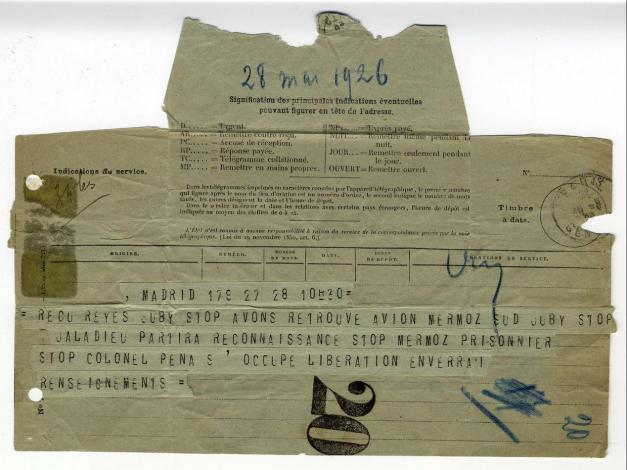 28 mai 1926
Signification des principales indications éventuelles
pouvant figurer en tête de l'adresse.
D....... = Urgent.
AR...... = Remettre contre reçu.
PC...... = Accusé de réception.
RP...... = Réponse payée.
TC...... = Télégramme collationné.
MP...... = Remettre en mains propres.
= Exprès payé.
NUIT = Remettre même pendant la
nuit.
JOUR... = Remettre seulement pendant
le jour.
OUVERT = Remettre ouvert.
Indications de service.
Dans les télégrammes imprimés en caractères romains par l'appareil télégraphique, le premier nombre
qui figure après le nom du lieu d'origine est un numéro d'ordre, le second indique le nombre de mots
taxés, les autres désignent la date et l'heure de dépôt.
Dans le service intérieur et dans les relations avec certains pays étrangers, l'heure de dépôt est
indiquée au moyen des chiffres de 0 à 24.
L'État n'est soumis à aucune responsabilité à raison du service de la correspondance privée par la voie
télégraphique. (Loi du 29 novembre 1850, art. 6.)
N°
Timbre
à date.
ORIGINE.
NUMÉRO.
NOMBRE
DE MOTS.
DATE.
HEURE
DE DÉPÔT.
MENTIONS DE SERVICE.
, MADRID 179 27 28 10H20=
= RECU REYES JUBY STOP AVONS RETROUVE AVION MERMOZ SUD JUBY STOP
JALADIEU PARTIRA RECONNAISSANCE STOP MERMOZ PRISONNIER
STOP COLONEL PENA S ' OCCUPE LIBERATION ENVERRAI
RENSEIGNEMENTS =
20
20